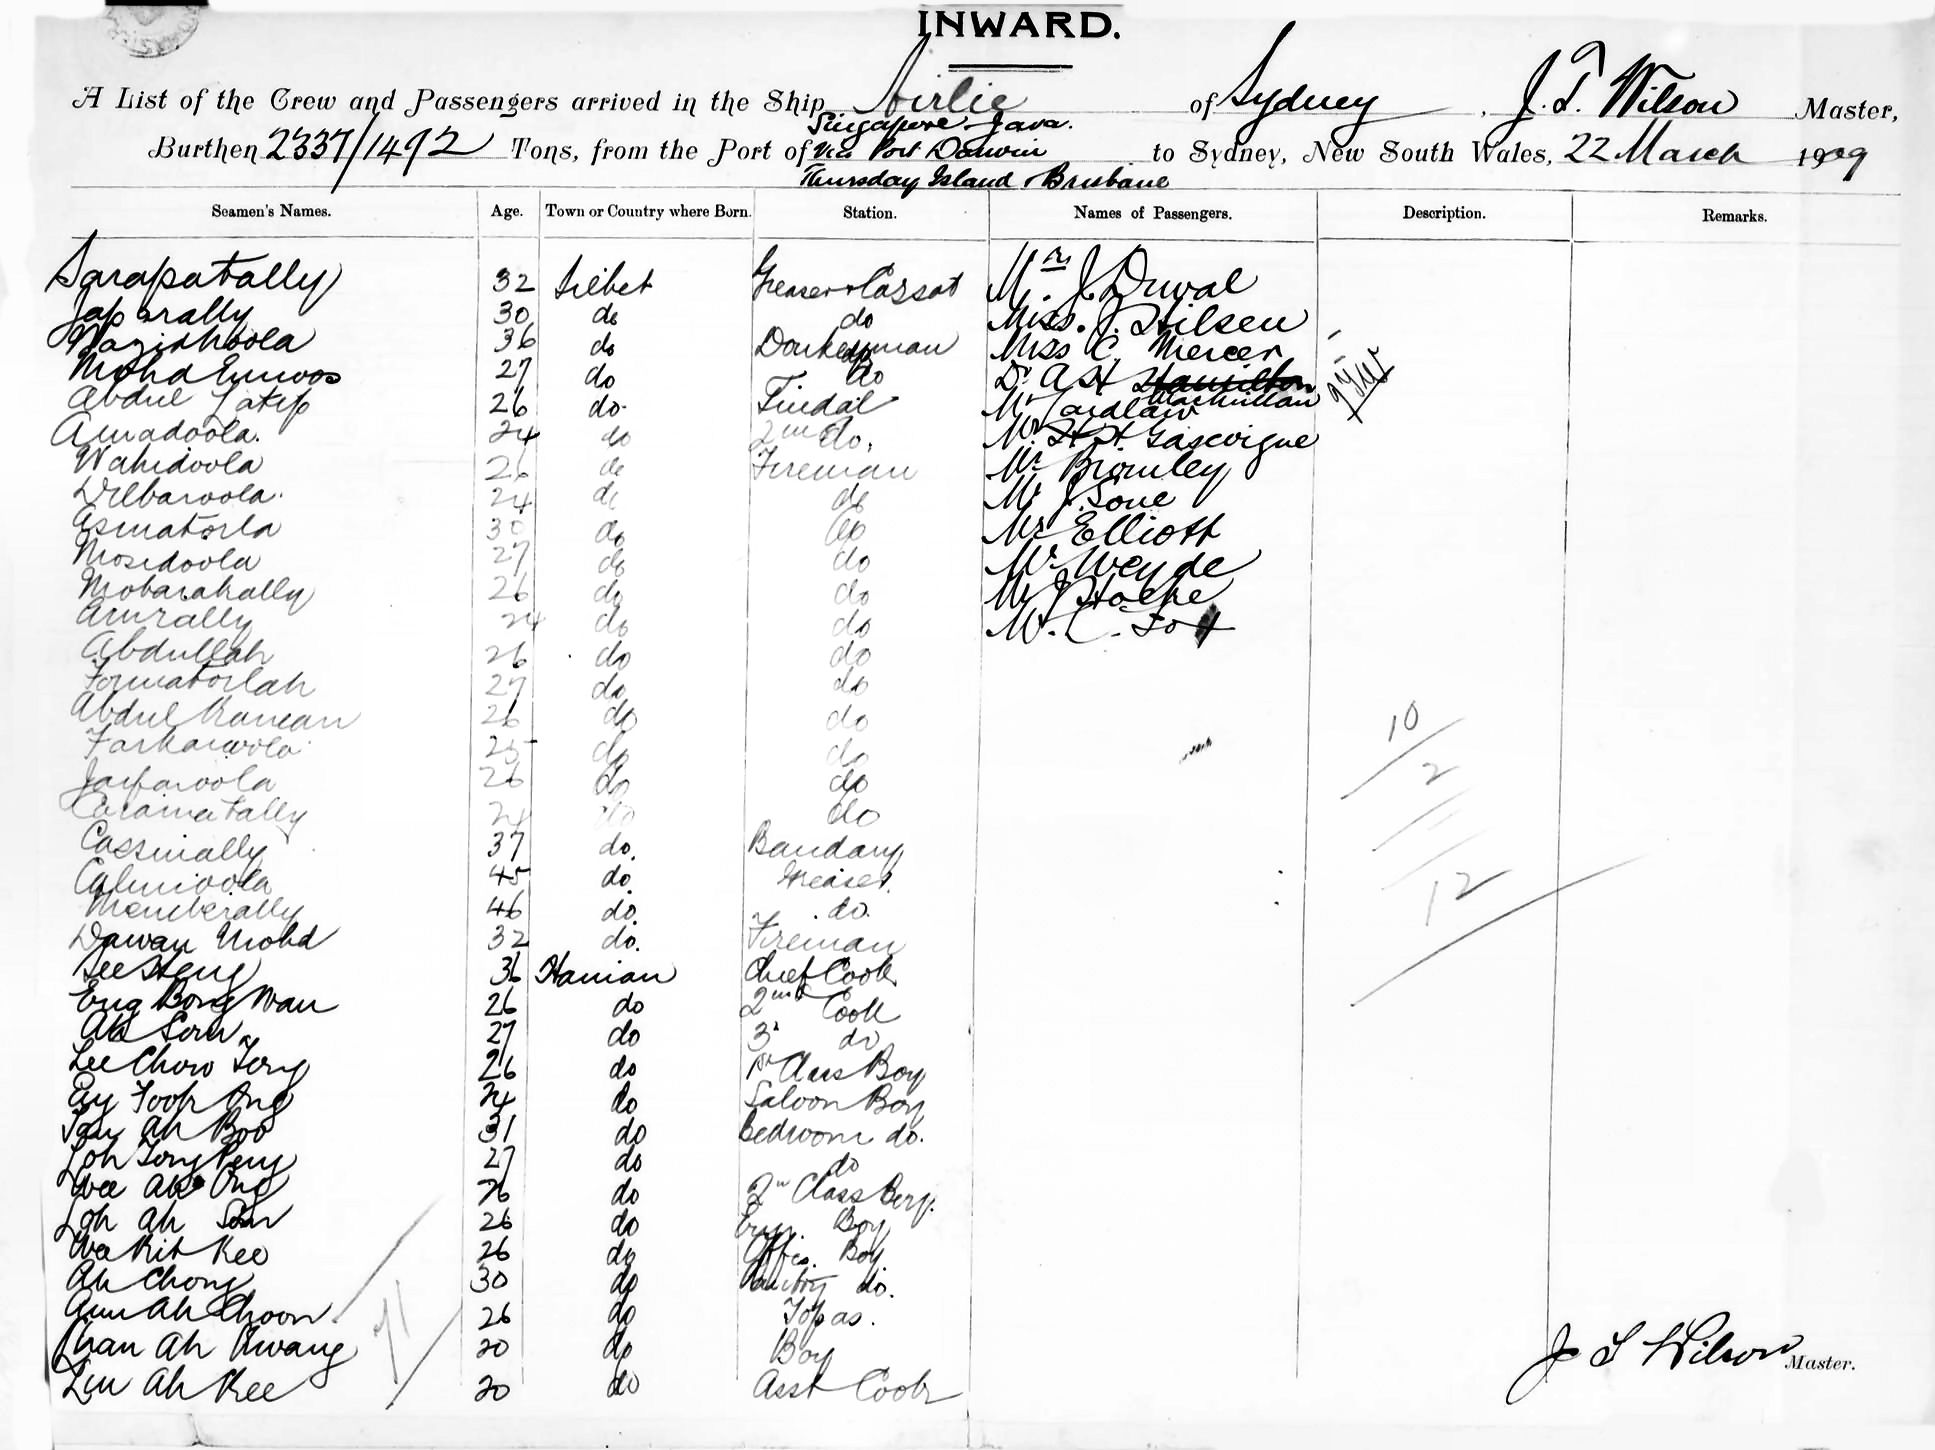 INWARD.
A List of the Crew and Passengers arrived in the Ship Airlie of Sydney, J. T. Wilson Master,
Burthen 2337/1492 Tons, from the Port of Singapore Java. via Port Darwin Thursday Island & Brisbane to Sydney, New South Wales, 22 March 1909
Seamen's Names. Age. Town or Country where Born. Station. Names of Passengers. Description. Remarks.
Sarapatally 32 Silhet Greaser & Cassat Mrs J. Duval
Japorally 30 do do Miss. J. Hilsen
36 do Donkeyman Miss C. Mercer
27 do do Dr A H Hamilton Macmillan
Abdul Latip 26 do. Tindal Mr Laidlaw
Amadoola. 24 do 2nd do. Mr H. H. Gascoigne
Wahidoola 26 do Fireman Mr Bromley
Dilbaroola. 24 do do Mr J. Sone
Asmatorla 30 do do Mr Elliott
Mosidoola 27 do do Mr Weyde
Mobarakally 26 do do Mr
Amrally 24 do do Mr. C. Fox
Abdullah 26 do do
Formatorlah 27 do do
Abdul Raman 26 do do
25 do do 10
Jaifaroola 26 do do 2
Caramatally 24 do do
Cassimally 37 do. Bandary
Calimoola 45 do. Greaser. 12
Memberally 46 do. do.
Dawan Mohd 32 do. Fireman
See Heng 36 Hainan Chief Cook
Eng Bong Wan 26 do 2nd Cook
Ah Som 27 do 3d do
Lee Chow Tong 26 do 1st Class Boy
Fook Ong 24 do Saloon Boy
Tan Ah Boo 31 do Bedroom do.
Loh Tong Peng 27 do do
Wee Ah Ong 26 do 2nd Class Boy.
Loh Ah Sim 26 do Engr. Boy
Wee Kit Kee 26 do Offrs. Boy
Ah Chong 30 do Pantry do.
Ah Choon 26 do Topas.
Chan Ah Kwang 20 do Boy J T Wilson Master.
Lim Ah Kee 20 do Asst Cook